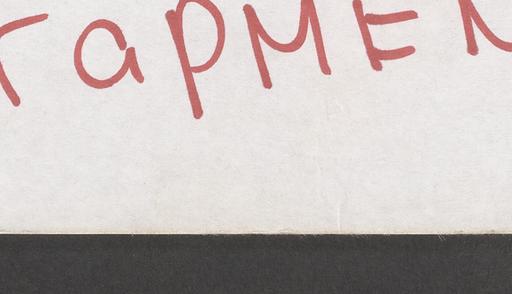 гармен